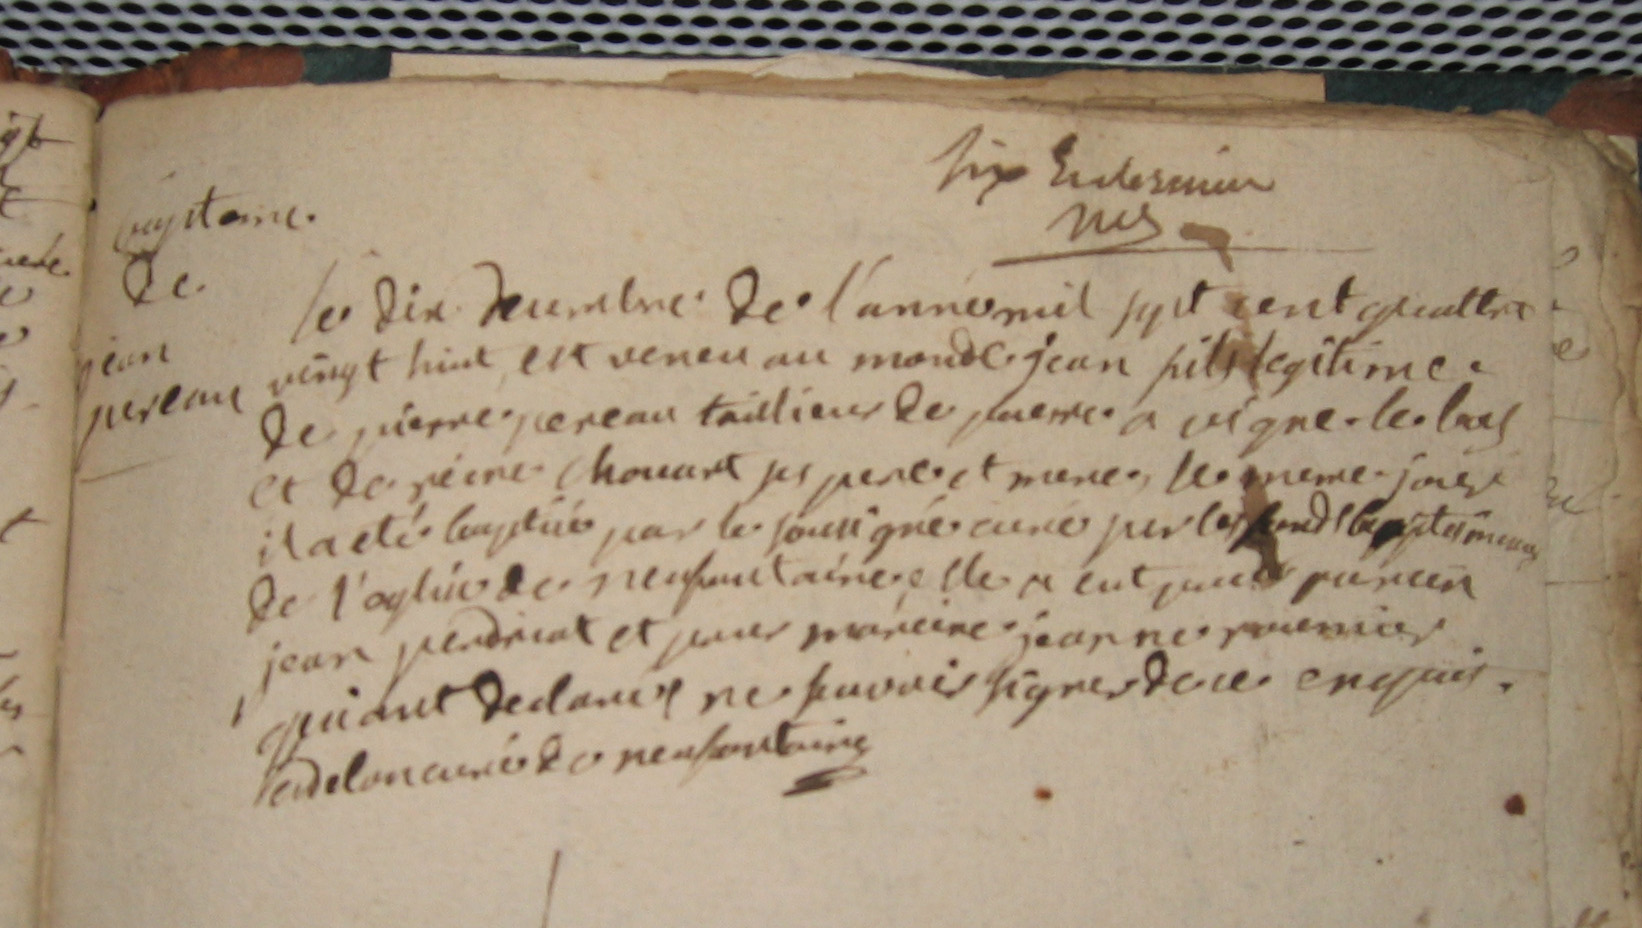 six Et dernier
baptême.
de
jean
pereau
le dix decembre de l'année mil sept cent quattre
vingt huit est veneu au monde jean fils legitime
de pierre pereau taillieur de pierre a vigne le bas
et de reine chouart ses pere et mere, le meme jour
il a eté baptisé par le sousigné curé sur les fonds baptismaux
de l'eglise de neuffontaine elle a eut pour parein
jean perdriat et pour mareine jeanne
qui ont declarés ne savoir signer de ce enquis.
curé de neuffontaine